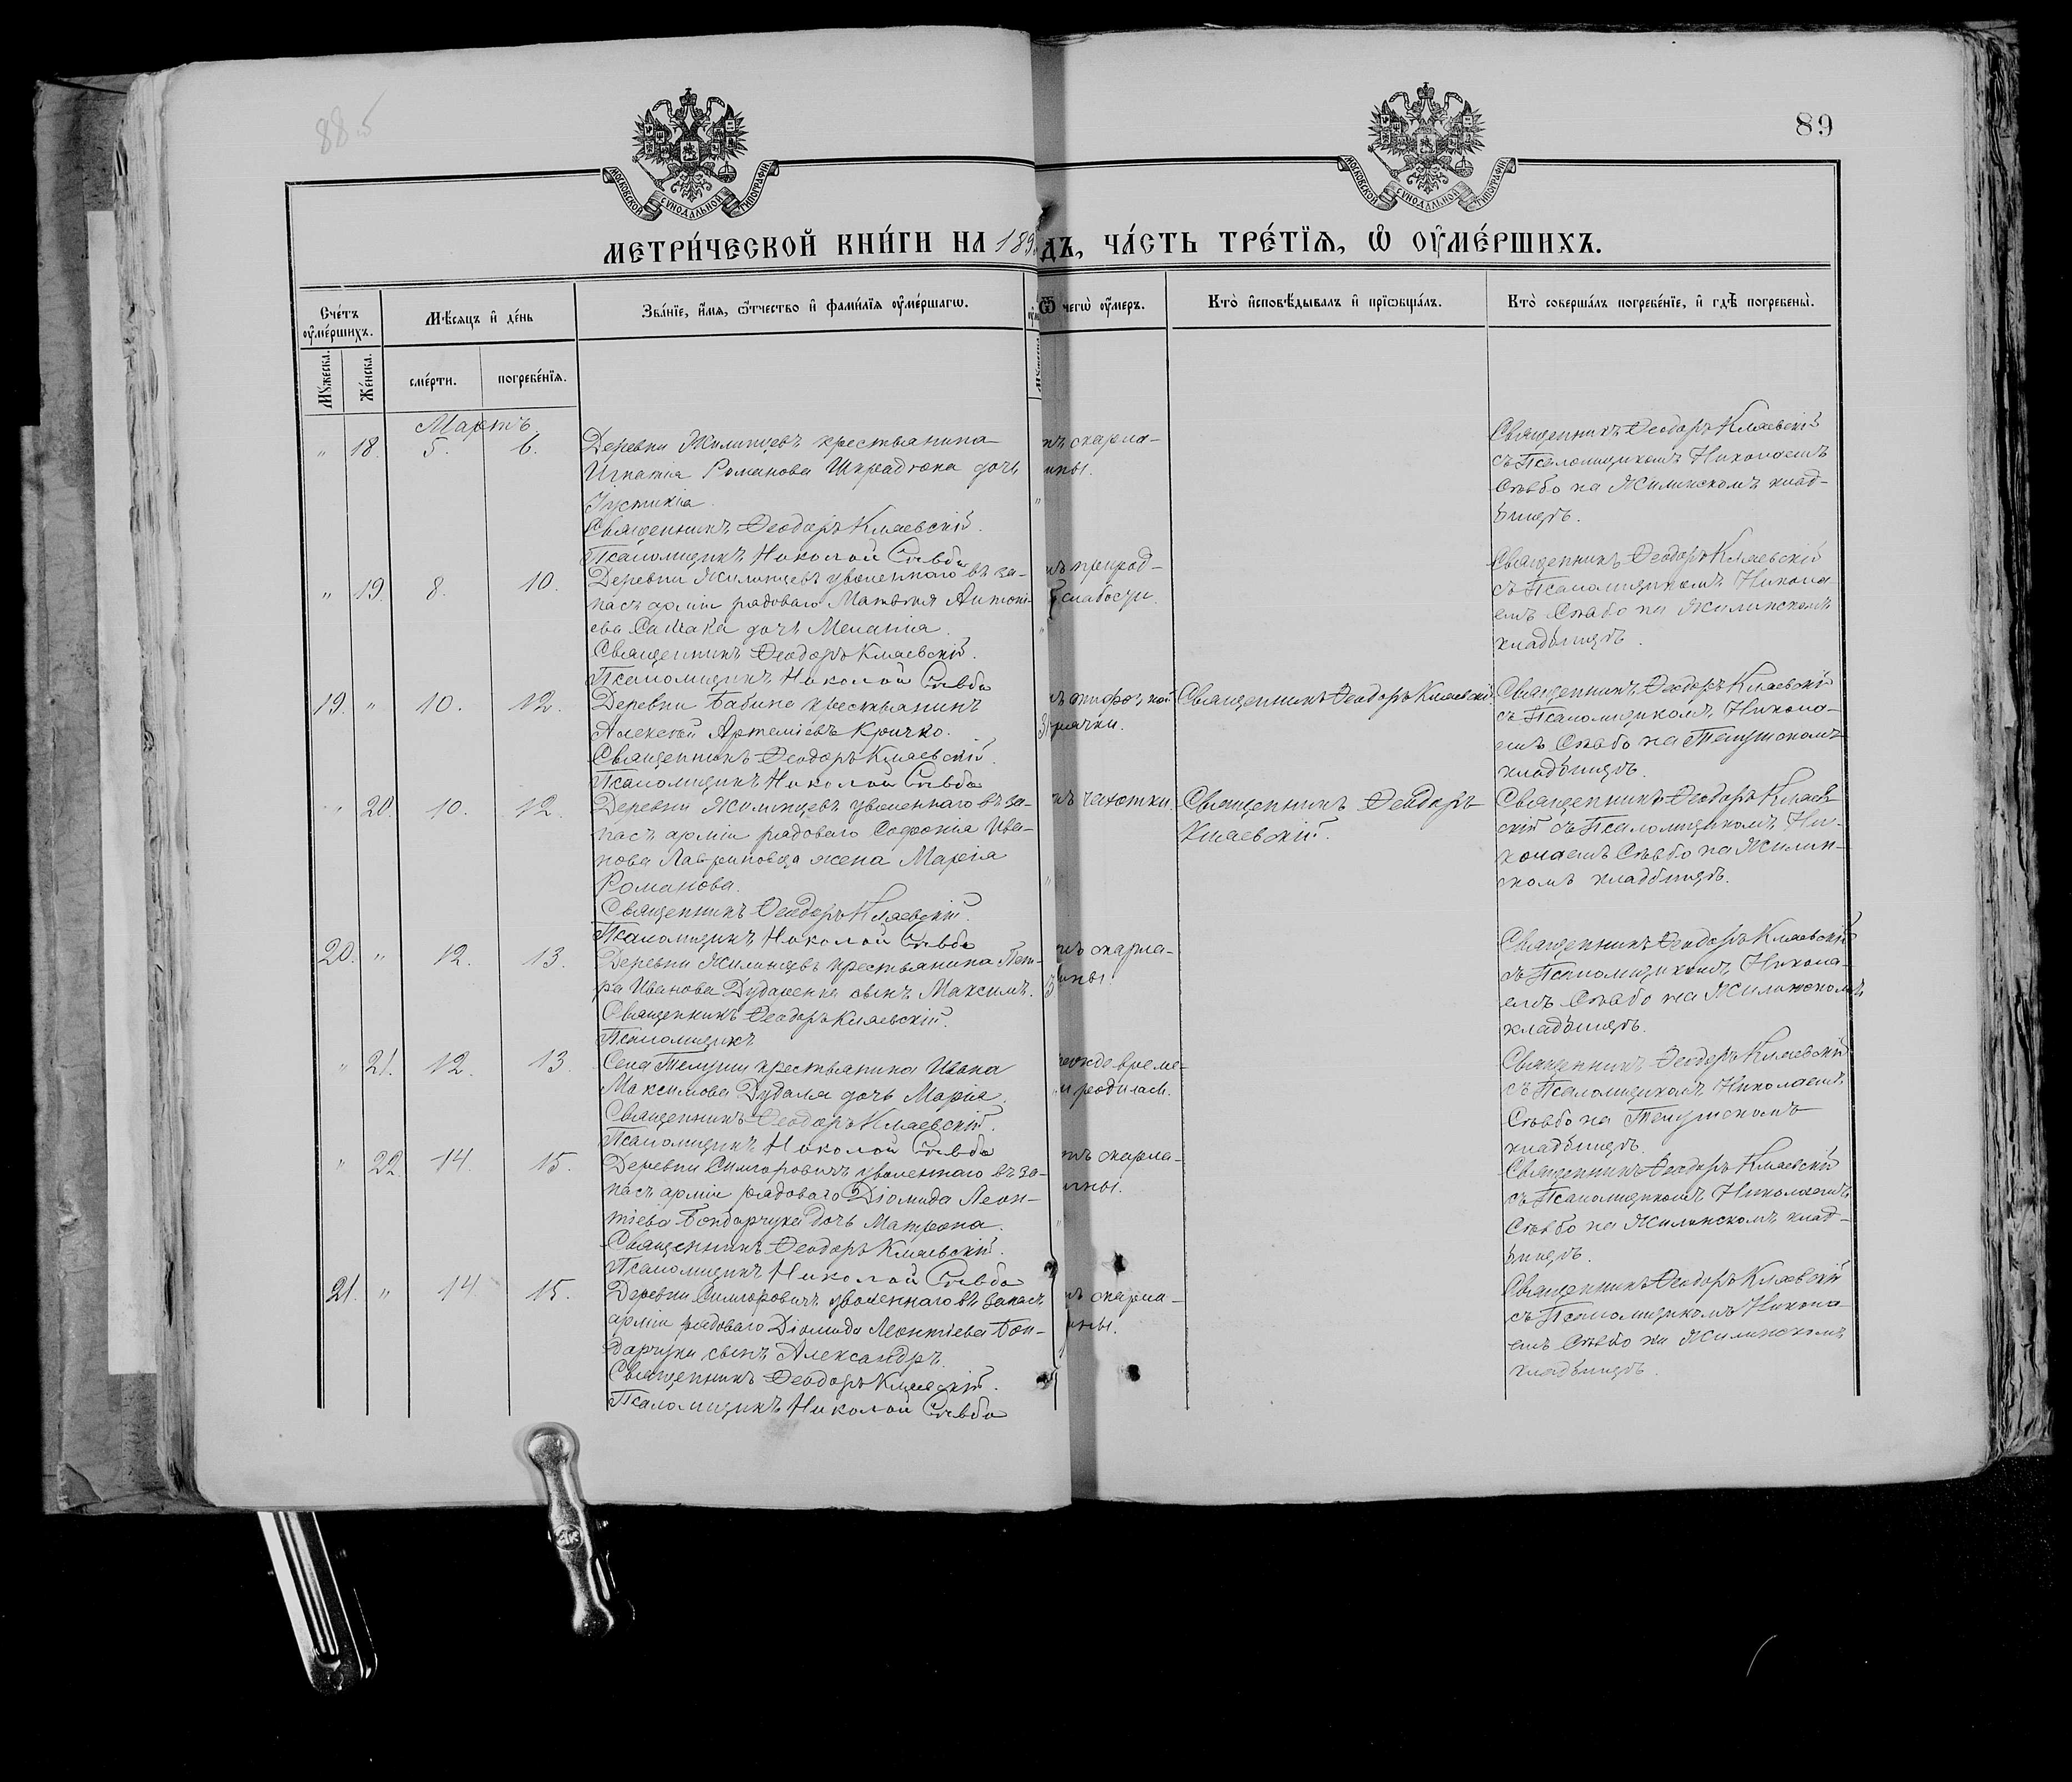 88 об
89
МОСКОВСКОЙ СѴНОДАЛЬНОЙ ТИПОГРАФІИ
МОСКОВСКОЙ СѴНОДАЛЬНОЙ ТИПОГРАФІИ
МЕТРИ́ЧЕСКОЙ КНИ́ГИ НА 189
ДЪ, ЧА́СТЬ ТРЕ́ТЇѦ, Ѽ ОУ҆МЕ́РШИХЪ.
Сче́тъ оу҆ме́ршихъ.
Мѣ́сяцъ и҆ де́нь
Зва́нїе, и҆́мя, ѻ҆́тчество и҆ фами́лїя оу҆ме́ршагѡ.
Ѿ чегѡ̀ оу҆́меръ.
Кто̀ и҆сповѣ́дывалъ и҆ прїѡбща́лъ.
Кто̀ соверша́лъ погребе́нїе, и҆ гдѣ̀ погребены̀.
Мꙋ́жеска.
Же́нска.
сме́рти.
погребе́нїя.
Мартъ.
" 18. 5. 6.
Деревни Жилинцевъ крестьянина
Игнатія Романова Шкрадюка дочь
Іустинія.
Священникъ Ѳеодоръ Кляевскій.
Псаломщикъ Николай Сѣвбо
скарла-
ины.
Священникъ Ѳеодоръ Кляевскій
съ Псаломщикомъ Николаемъ
Сѣвбо на Жилинскомъ клад-
бищѣ.
" 19. 8. 10.
Деревни Жилинцевъ уволеннаго въ за-
пасъ арміи рядоваго Матвѣя Антоні-
ева Самака дочь Меланія.
Священникъ Ѳеодоръ Кляевскій.
Псаломщикъ Николай Сѣвбо
природ-
слабости.
Священникъ Ѳеодоръ Кляевскій
съ Псаломщикомъ Никола-
емъ Сѣвбо на Жилинскомъ
кладбищѣ.
19. " 10. 12.
Деревни Бабина крестьянинъ
Алексѣй Артеміевъ Кричко.
Священникъ Ѳеодоръ Кляевскій.
Псаломщикъ Николай Сѣвбо
тифозной
рячки.
Священникъ Ѳеодоръ Кляевскій.
Священникъ Ѳеодоръ Кляевскій
съ Псаломщикомъ Никола-
емъ Сѣвбо на Телушскомъ
кладбищѣ.
" 20. 10. 12.
Деревни Жилинцевъ уволеннаго въ за-
пасъ арміи рядоваго Софронія Ива-
нова Лавриновца жена Марѳа
Романова.
Священникъ Ѳеодоръ Кляевскій.
Псаломщикъ Николай Сѣвбо
чахотки.
Священникъ Ѳеодоръ
Кляевскій.
Священникъ Ѳеодоръ Кляев-
скій съ Псаломщикомъ Ни-
колаемъ Сѣвбо на Жилин-
скомъ кладбищѣ.
20. " 12. 13.
Деревни Жилинцевъ крестьянина Пет-
ра Иванова Дударенка сынъ Максимъ.
Священникъ Ѳеодоръ Кляевскій.
Псаломщикъ
скарла-
ины.
Священникъ Ѳеодоръ Кляевскій
съ Псаломщикомъ Никола-
емъ Сѣвбо на Жилинскомъ
кладбищѣ.
" 21. 12. 13.
Села Телуши крестьянина Ивана
Максимова Дудаля дочь Марія.
Священникъ Ѳеодоръ Кляевскій.
Псаломщикъ Николай Сѣвбо
режде време-
и родилась.
Священникъ Ѳеодоръ Кляевскій
съ Псаломщикомъ Николаемъ
Сѣвбо на Телушскомъ
кладбищѣ.
" 22. 14. 15.
Деревни Симоровичъ уволеннаго въ за-
пасъ арміи рядоваго Діомида Леон-
тіева Бондарчука дочь Матрона.
Священникъ Ѳеодоръ Кляевскій.
Псаломщикъ Николай Сѣвбо
скарла-
ины.
Священникъ Ѳеодоръ Кляевскій
съ Псаломщикомъ Николаемъ
Сѣвбо на Жилинскомъ клад-
бищѣ.
21. " 14. 15.
Деревни Симоровичъ уволеннаго въ запасъ
арміи рядоваго Діомида Леонтіева Бон-
дарчука сынъ Александръ.
Священникъ Ѳеодоръ Кляевскій.
Псаломщикъ Николай Сѣвбо
скарла-
ины.
Священникъ Ѳеодоръ Кляевскій
съ Псаломщикомъ Никола-
емъ Сѣвбо на Жилинскомъ
кладбищѣ.